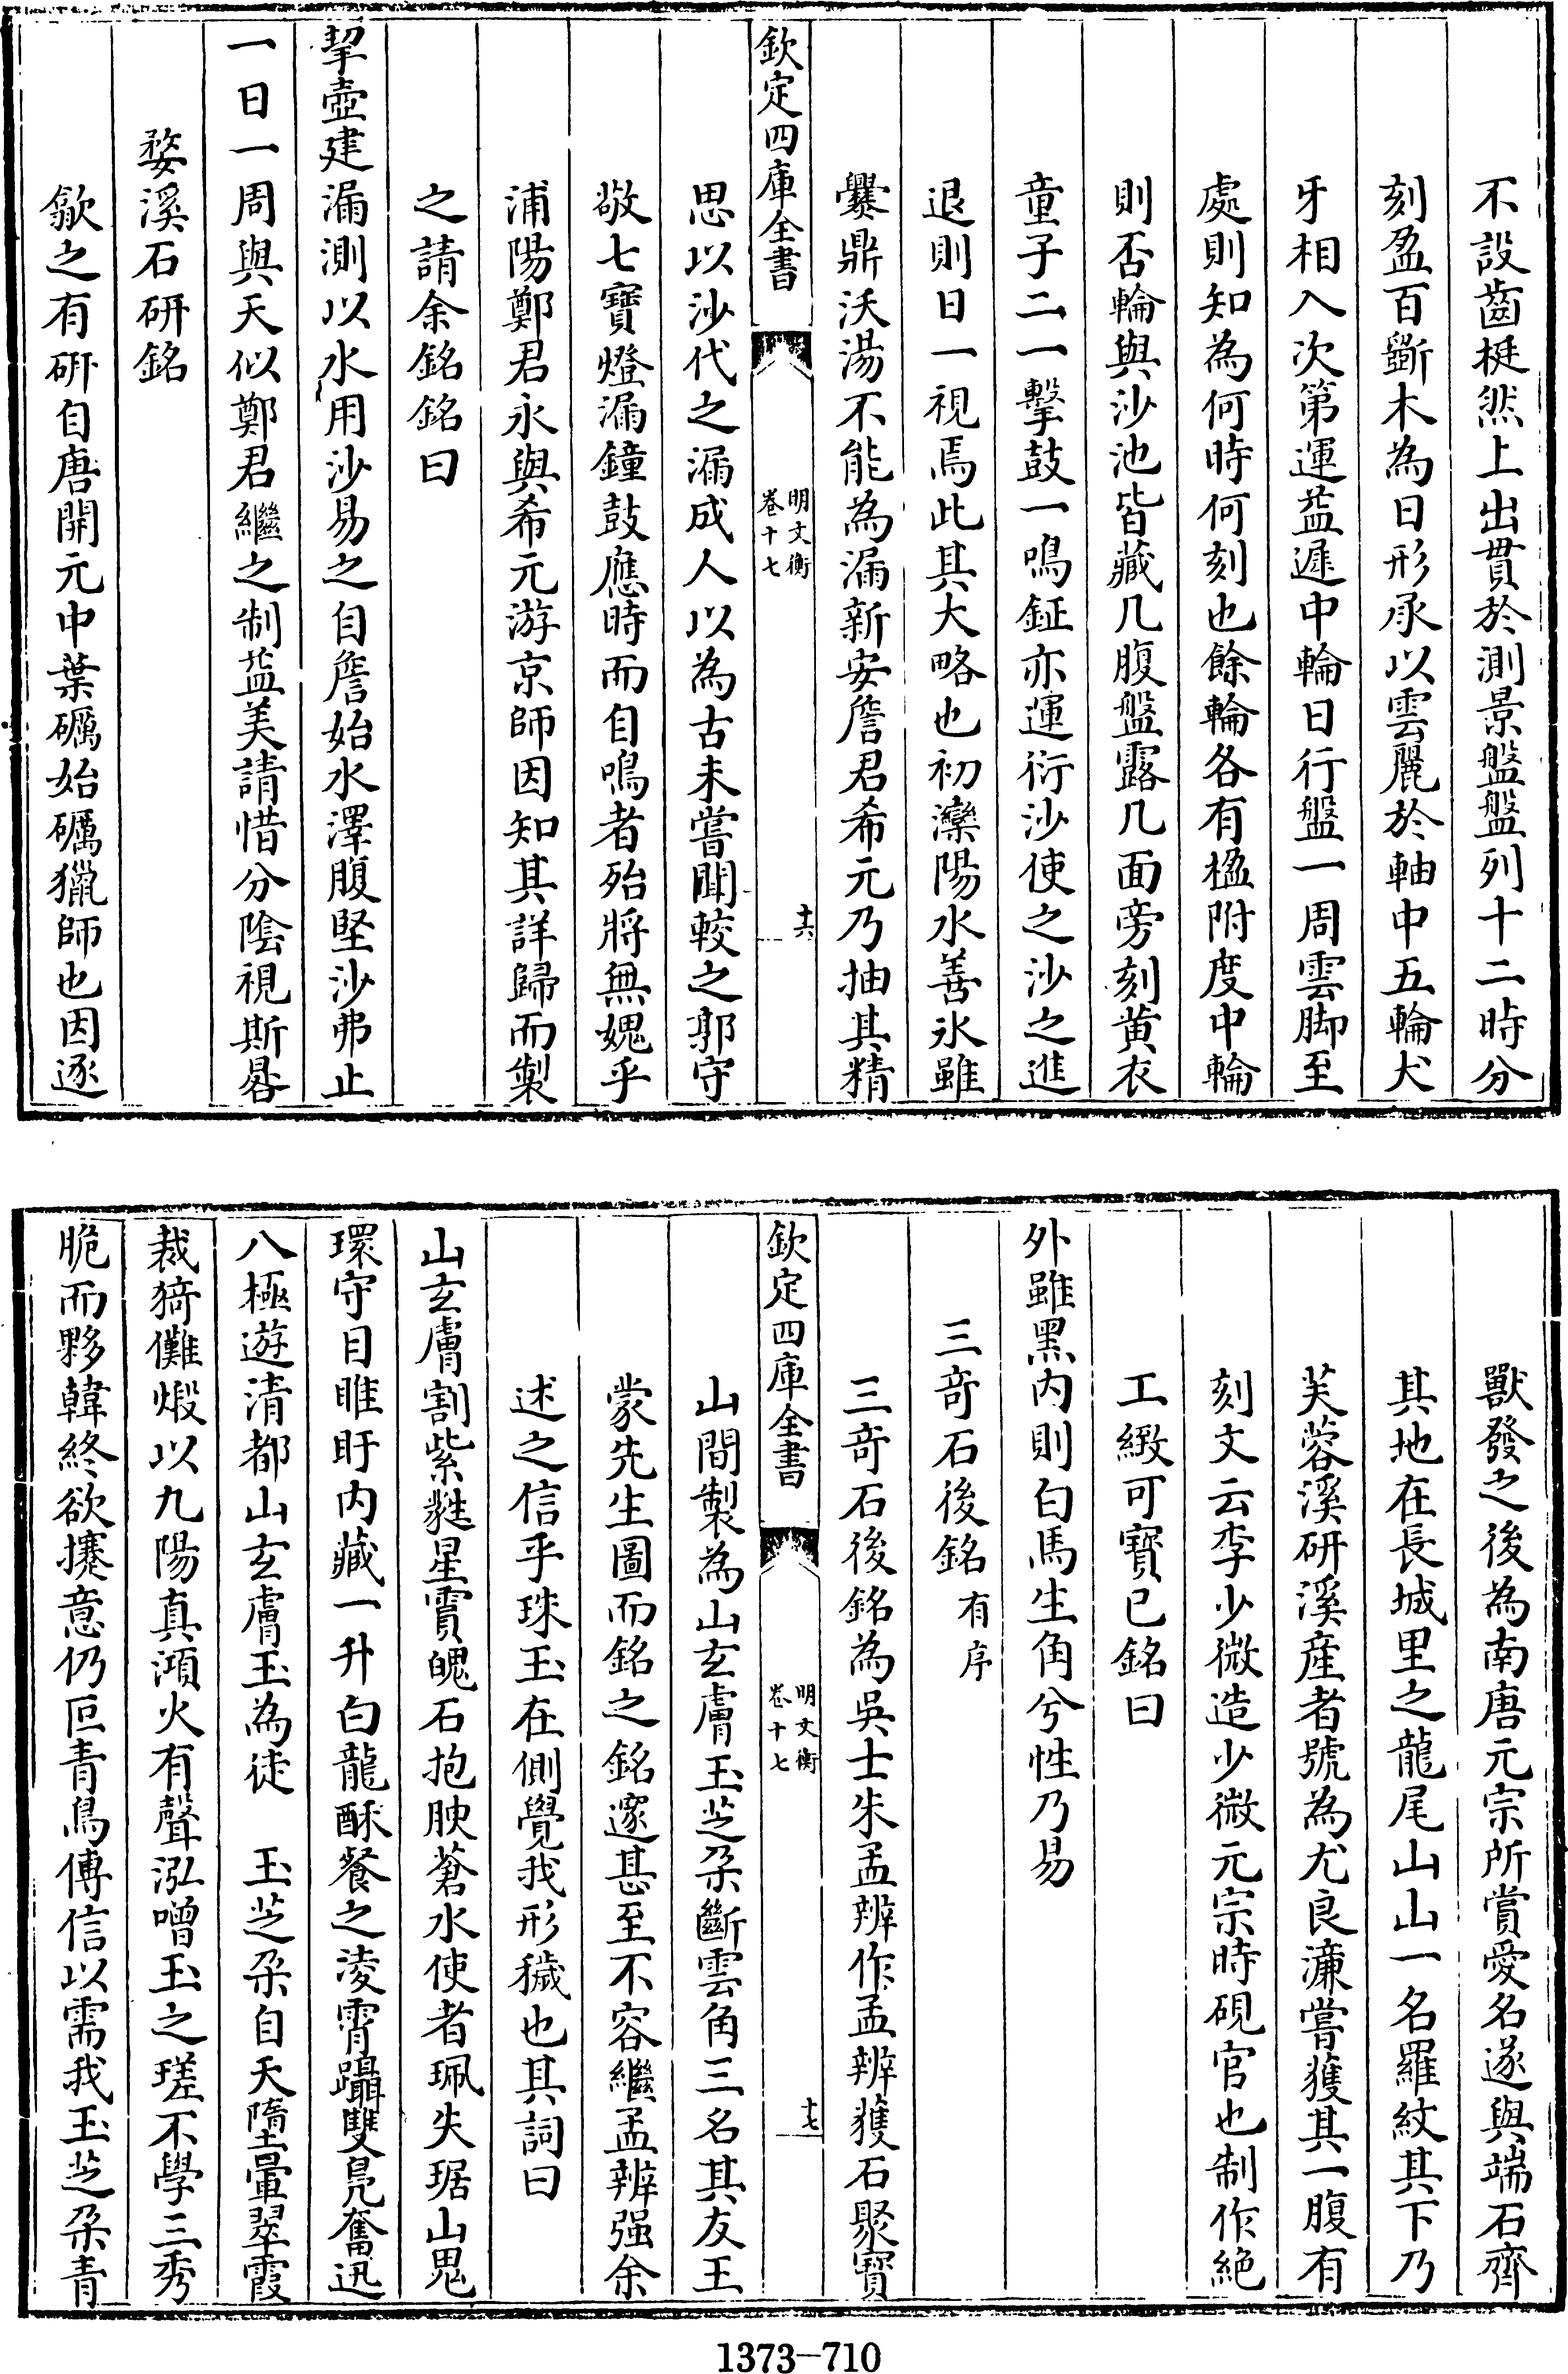 不設齒挺然上出貫於測景盤盤列十二時分
刻盈百斵木為日形承以雲麗於軸中五輪犬
牙相入次第運益遲中輪日行盤一周雲脚至
處則知為何時何刻也餘輪各有楹附度中輪
則否輪與沙池皆藏几腹盤露几面旁刻黄衣
童子二一擊鼓一鳴鉦亦運衍沙使之沙之進
退則日一視焉此其大略也初灤陽水善氷雖
爨鼎沃湯不能為漏新安詹君希元乃抽其精
欽定四庫全書
明文衡
卷十七
十六
思以沙代之漏成人以為古未嘗聞較之郭守
敬七寶燈漏鐘鼓應時而自鳴者殆將無媿乎
浦陽鄭君永與希元游京師因知其詳歸而製
之請余銘銘曰
挈壺建漏測以水用沙易之自詹始水澤腹堅沙弗止
一日一周與天似鄭君繼之制益美請惜分陰視斯晷
婺溪石研銘
歙之有硏自唐開元中葉礪始礪獵師也因逐
獸發之後為南唐元宗所賞愛名遂與端石齊
其地在長城里之龍尾山山一名羅紋其下乃
芙蓉溪研溪産者號為尤良濂嘗獲其一腹有
刻文云李少微造少微元宗時硯官也制作絶
工緻可寶已銘曰
外雖黑内則白馬生角兮性乃易
三奇石後銘有序
三奇石後銘為吳士朱孟辨作孟辨獲石聚寶
欽定四庫全書
明文衡
卷十七
十七
山間製為山玄膚玉芝朵斷雲角三名其友王
蒙先生圖而銘之銘邃甚至不容繼孟辨强余
述之信乎珠玉在側覺我形穢也其詞曰
山玄膚割紫甤星霣魄石抱腴蒼水使者珮失琚山鬼
環守目睢盱内藏一升白龍酥餐之淩霄躡雙鳧奮迅
八極遊清都山玄膚玉為徒　玉芝朵自天墮暈翠霞
裁猗儺煅以九陽真澒火有聲泓噌玉之瑳不學三秀
脆而夥韓終欲攓意仍叵青鳥傳信以需我玉芝朵青
1373-710